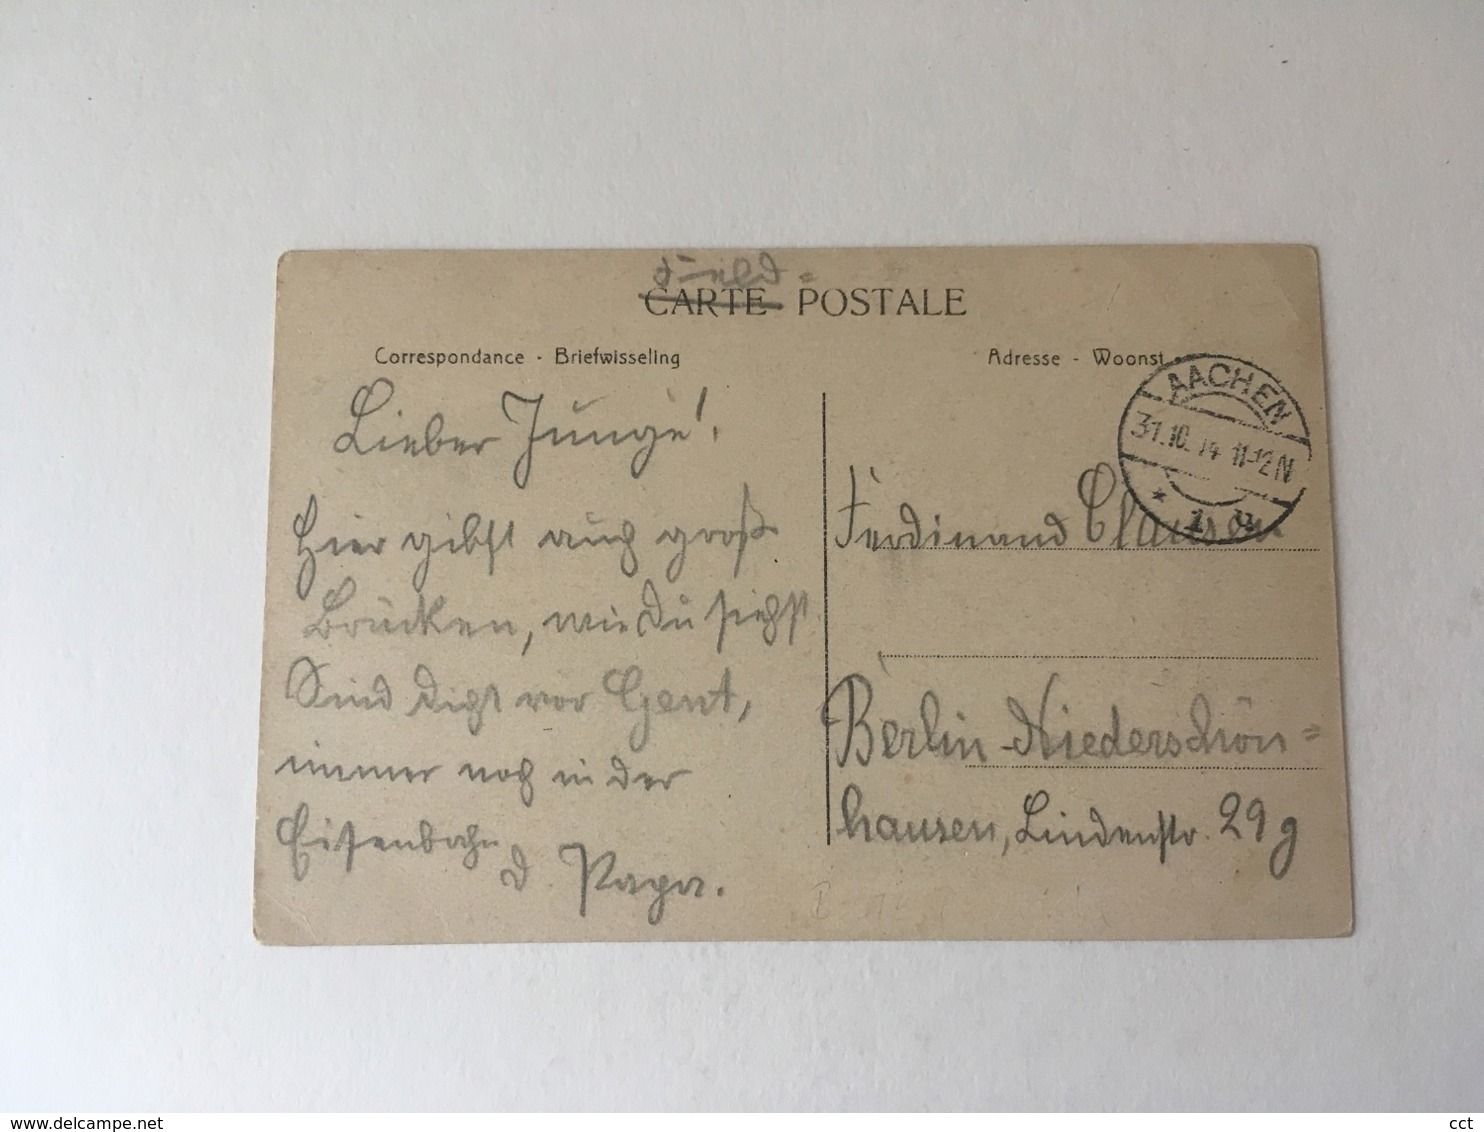 Feld-
CARTE POSTALE
Correspondance - Briefwisseling
Adresse - Woonst
AACHEN
31.10.14 11-12N
* 1 u
Lieber Junge!
Hier gibts auch groß
Brücken, wie Du siehst
Sind dicht vor Gent,
immer noch in der
Eisenbahn
D. Papa.
Ferdinand Clausen
Berlin-Niederschön=
hausen, Lindenstr. 29g
delcampe.net
cct